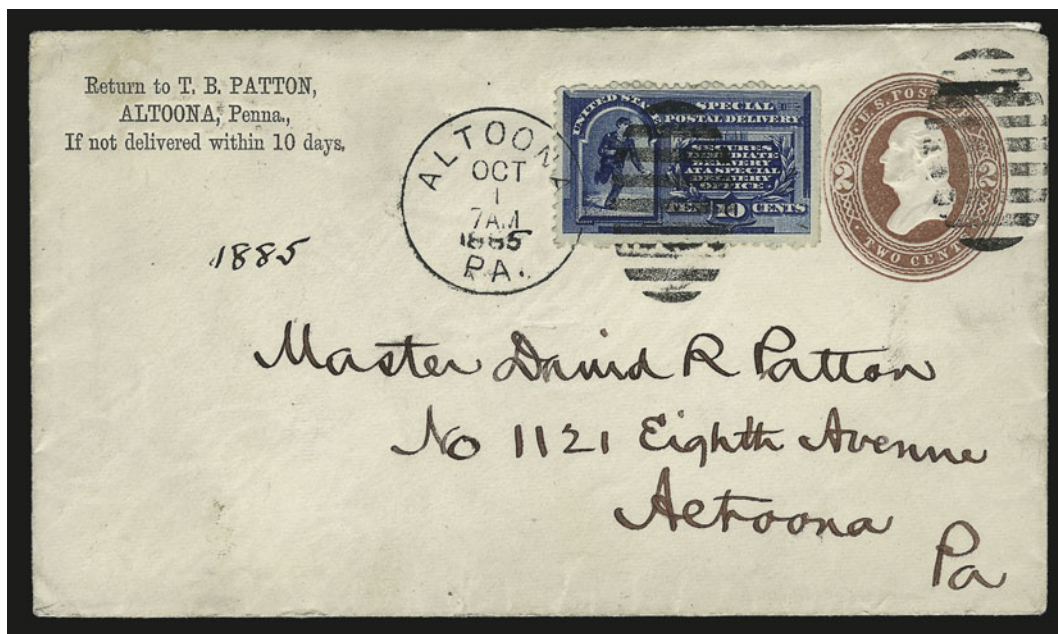 Return to T. B. PATTON,
ALTOONA, Penna.,
If not delivered within 10 days,
ALTOONA
OCT
1
7AM
1885
PA.
UNITED STATES
SPECIAL
POSTAL DELIVERY
SECURES
IMMEDIATE
DELIVERY
AT A SPECIAL
DELIVERY
OFFICE
TEN 10 CENTS
U.S. POST
2 2
TWO CENT
1885
Master David R Patton
No 1121 Eighth Avenue
Altoona
Pa